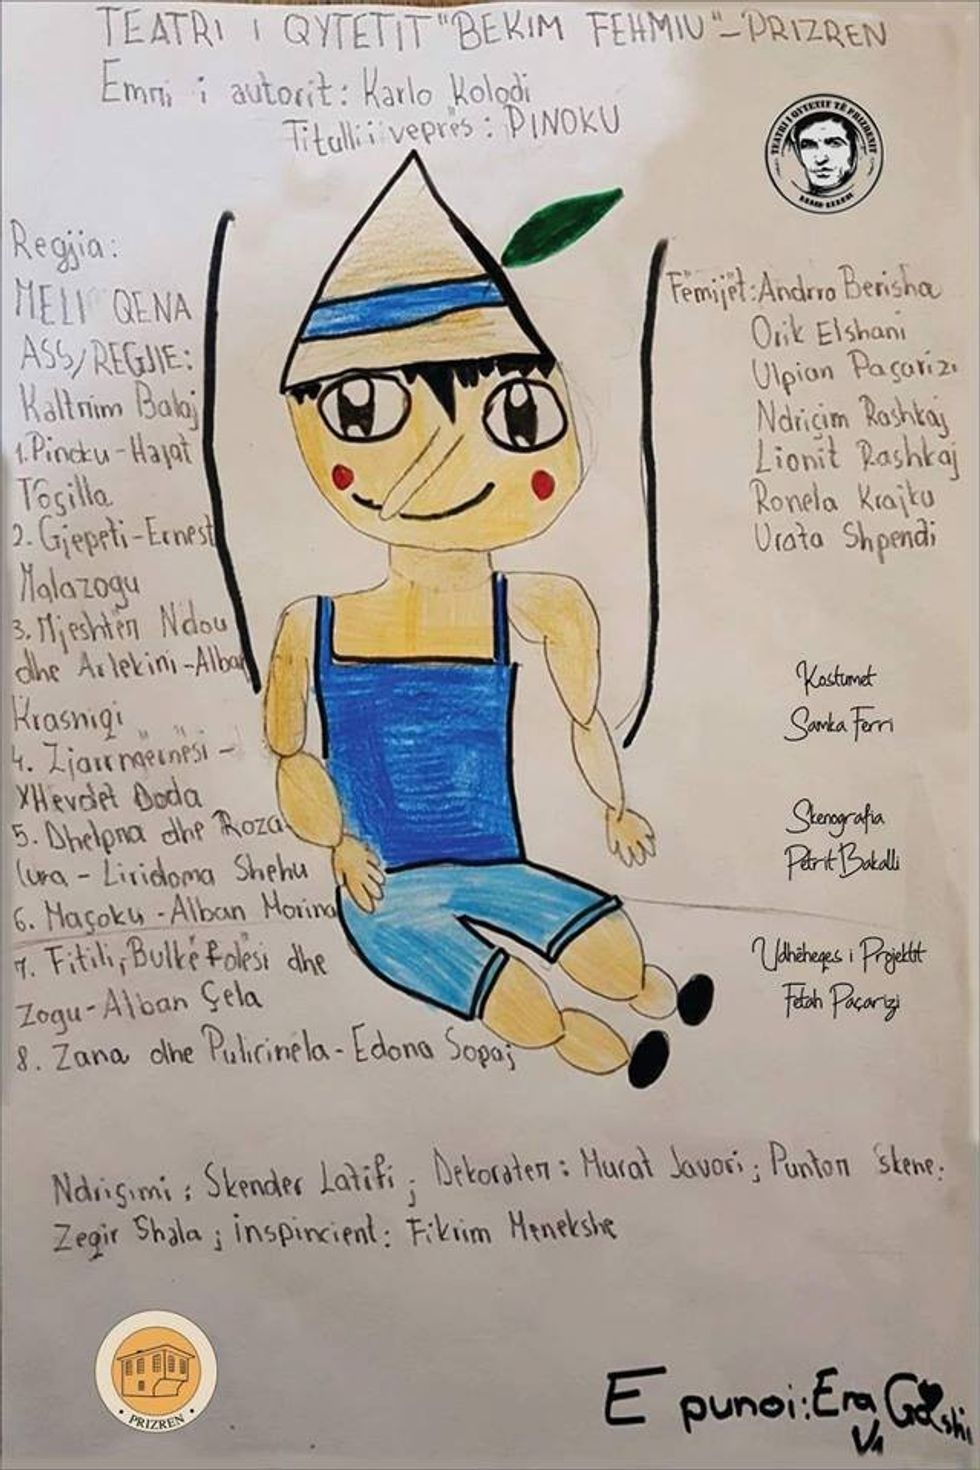 TEATRI I QYTETIT "BEKIM FEHMIU"-PRIZREN
Emri i autorit: Karlo Kolodi
Titulli i veprës: PINOKU
TEATRI I QYTETIT TË PRIZRENIT
Regjia:
MELI QENA
ASS/REGJIE:
Kaltrim Balaj
1.Pinoku-Hajat
Toçilla
2. Gjepeti-Ernest
Malazogu
3. Mjeshtër Ndou
dhe Arlekini-Alban
Krasniqi
4. Zjarrngërnësi -
XHevdet Doda
5. Dhelpna dhe Roza
Lura - Liridoma Shehu
6. Maçoku -Alban Morina
7. Fitili, Bulkëfolësi dhe
Zogu-Alban Çela
8. Zana dhe Pulicinela-Edona Sopaj
Fëmijët: Andrra Berisha
Orik Elshani
Ulpian Paçarizi
Ndriçim Rashkaj
Lionit Rashkaj
Ronela Krajku
Urata Shpendi
Kostumet
Samka Ferri
Skenografia
Petrit Bakalli
Udhëheqës i Projektit
Fetah Paçarizi
Ndriçimi: Skender Latifi; Dekoraten: Murat Javori; Punton Skene:
Zeqir Shala; inspincient: Fikrim Menekshe
PRIZREN
E punoi: Era Gashi
V1